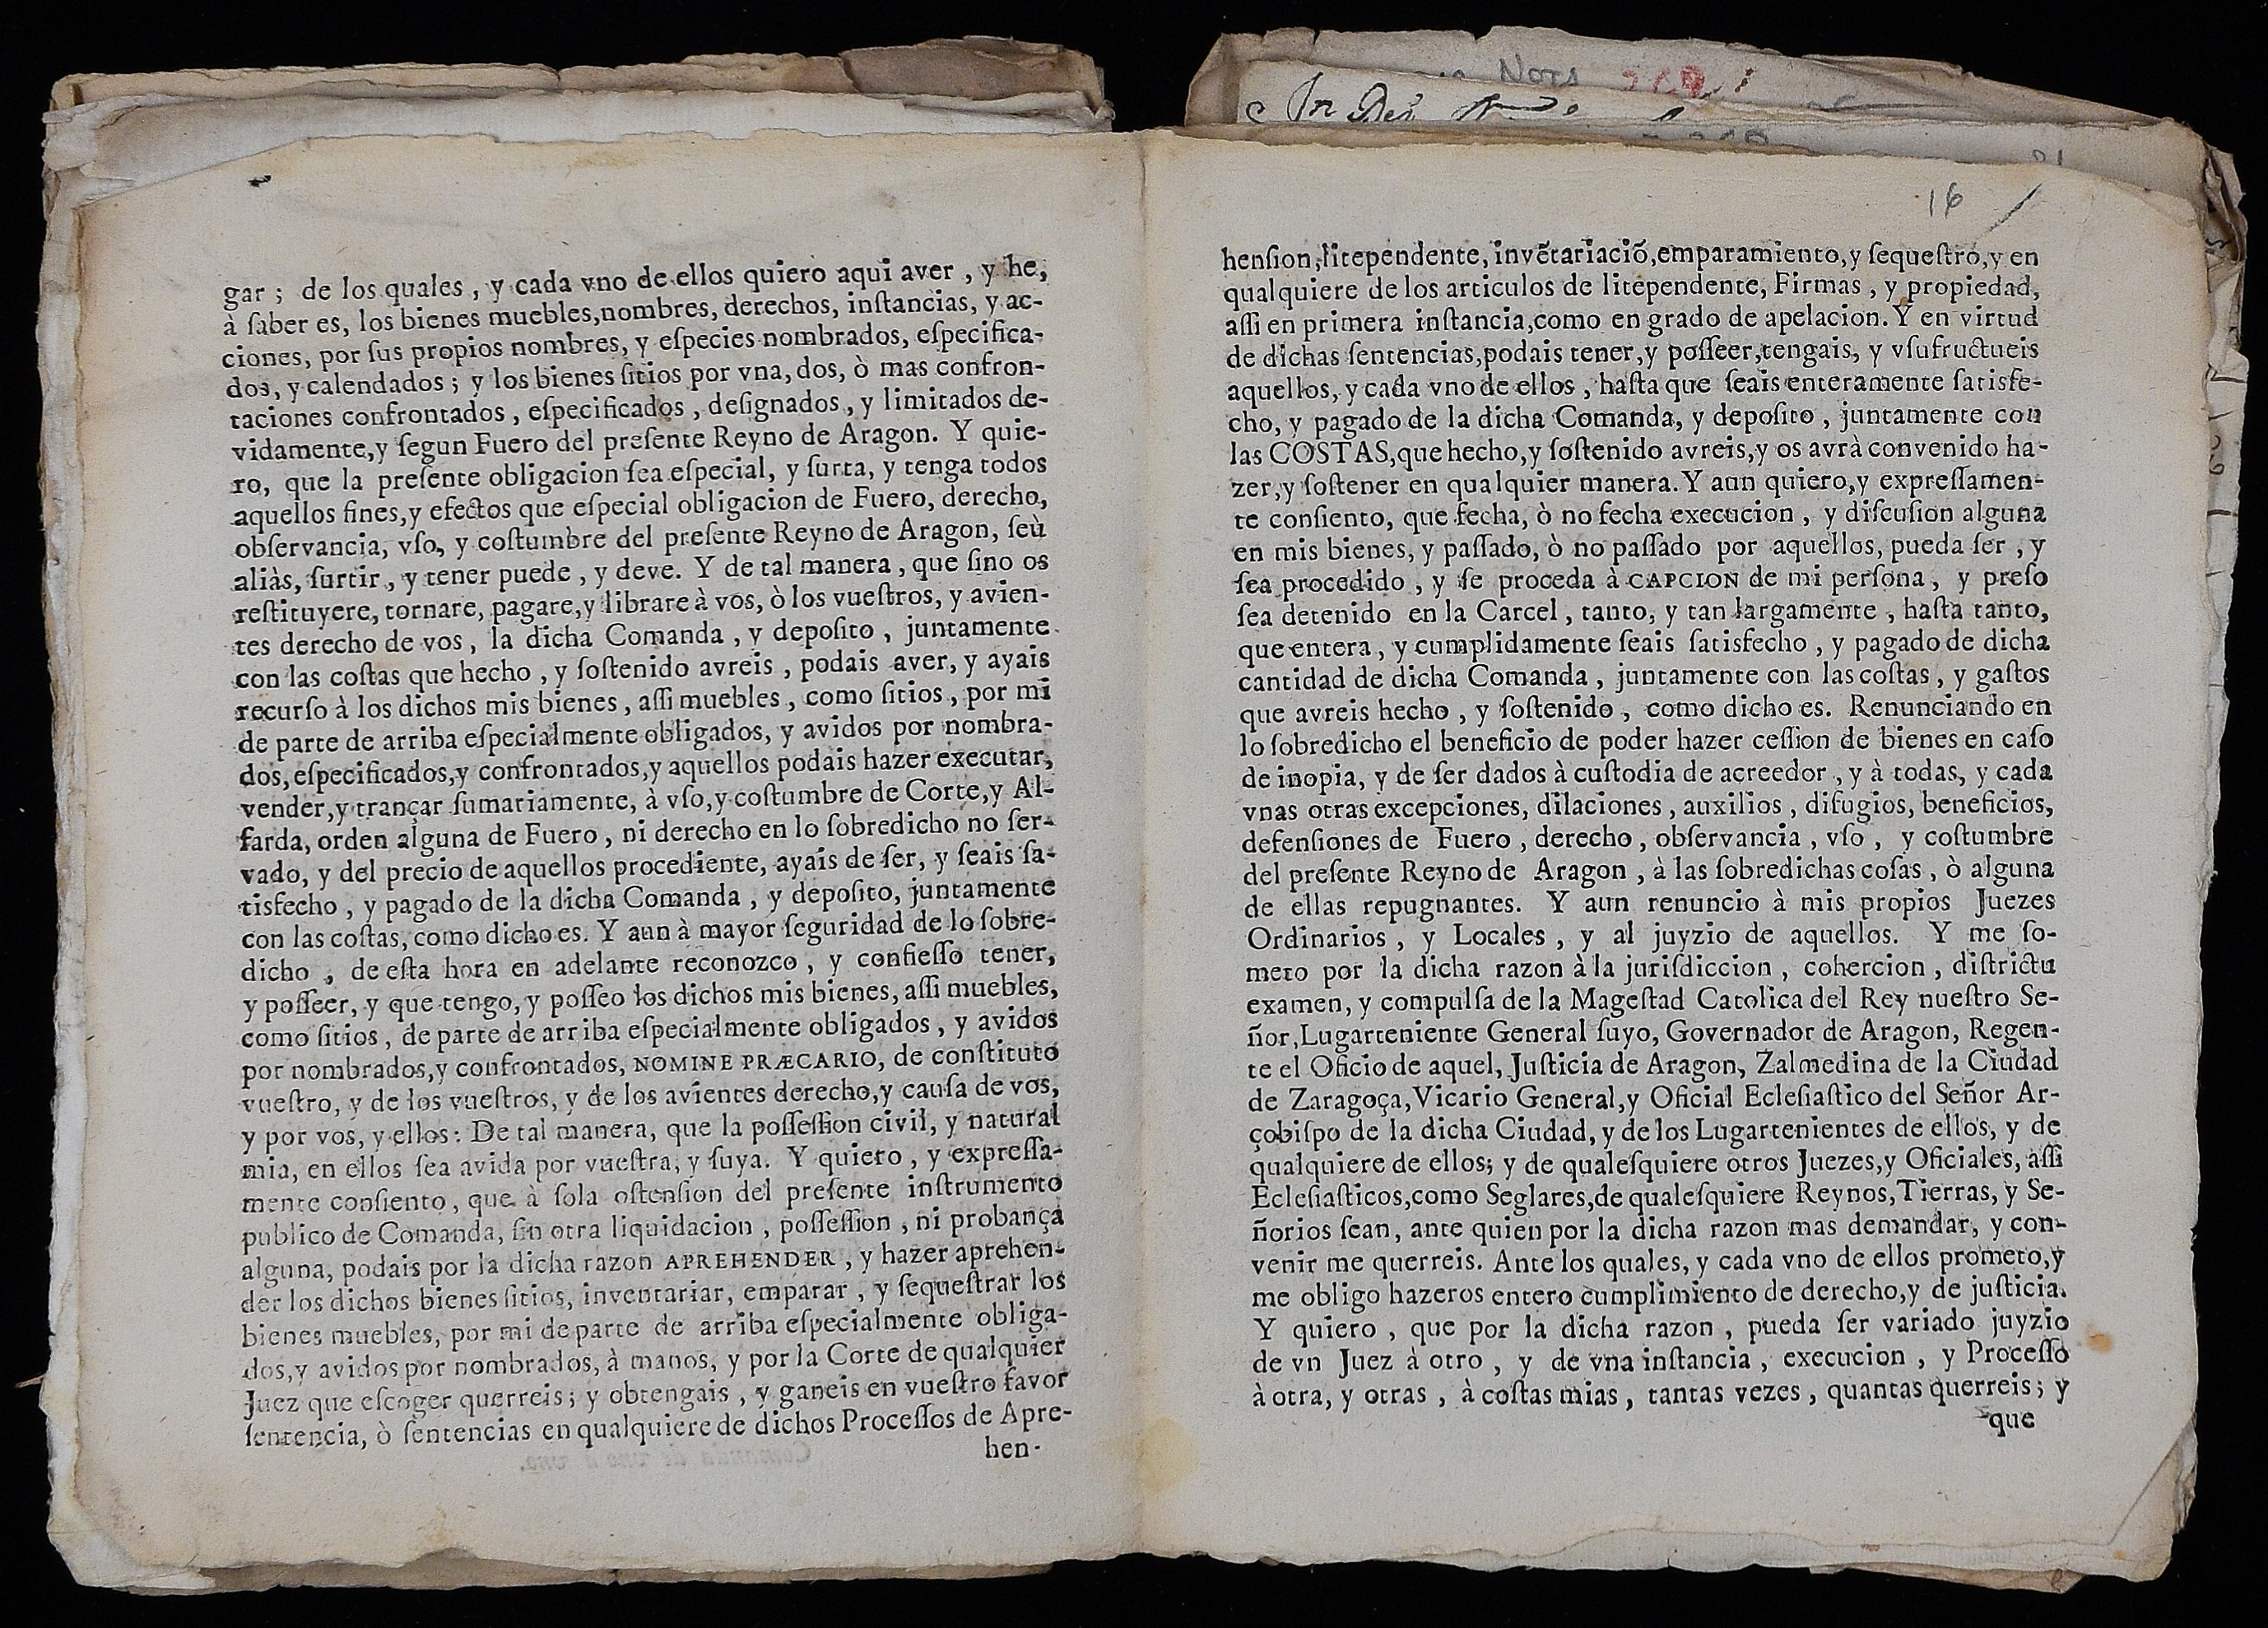 gar ; de los quales , y cada vno de ellos quiero aqui aver , y he,
à ſaber es, los bienes muebles,nombres, derechos, inſtancias, y ac-
ciones, por ſus propios nombres, y eſpecies nombrados, eſpecifica-
dos, y calendados ; y los bienes ſitios por vna, dos, ò mas confron-
taciones confrontados , eſpecificados , deſignados , y limitados de-
vidamente,y ſegun Fuero del preſente Reyno de Aragon. Y quie-
ro, que la preſente obligacion ſea eſpecial, y ſurta, y tenga todos
aquellos fines,y efectos que eſpecial obligacion de Fuero, derecho,
obſervancia, vſo, y coſtumbre del preſente Reyno de Aragon, ſeù
aliàs, ſurtir , y tener puede , y deve. Y de tal manera , que ſino os
reſtituyere, tornare, pagare,y librare à vos, ò los vueſtros, y avien-
tes derecho de vos , la dicha Comanda , y depoſito , juntamente
con las coſtas que hecho , y ſoſtenido avreis , podais aver, y ayais
recurſo à los dichos mis bienes , aſſi muebles , como ſitios , por mi
de parte de arriba eſpecialmente obligados, y avidos por nombra-
dos, eſpecificados,y confrontados,y aquellos podais hazer executar,
vender,y trançar ſumariamente, à vſo,y coſtumbre de Corte,y Al-
farda, orden alguna de Fuero , ni derecho en lo ſobredicho no ſer-
vado, y del precio de aquellos procediente, ayais de ſer, y ſeais ſa-
tisfecho , y pagado de la dicha Comanda , y depoſito, juntamente
con las coſtas, como dicho es. Y aun à mayor ſeguridad de lo ſobre-
dicho , de eſta hora en adelante reconozco , y confieſſo tener,
y poſſeer, y que tengo, y poſſeo los dichos mis bienes, aſſi muebles,
como ſitios , de parte de arriba eſpecialmente obligados , y avidos
por nombrados,y confrontados, NOMINE PRÆCARIO, de conſtituto
vueſtro, y de los vueſtros, y de los avientes derecho,y cauſa de vos,
y por vos, y ellos: De tal manera, que la poſſeſsion civil, y natural
mia, en ellos ſea avida por vueſtra, y ſuya. Y quiero , y expreſſa-
mente conſiento, que à ſola oſtenſion del preſente inſtrumento
publico de Comanda, ſin otra liquidacion , poſſeſſion , ni probança
alguna, podais por la dicha razon APREHENDER , y hazer aprehen-
der los dichos bienes ſitios, inventariar, emparar , y ſequeſtrar los
bienes muebles, por mi de parte de arriba eſpecialmente obliga-
dos,y avidos por nombrados, à manos, y por la Corte de qualquier
Juez que eſcoger querreis; y obtengais , y ganeis en vueſtro favor
ſentencia, ò ſentencias en qualquiere de dichos Proceſſos de Apre-
hen-
16
henſion,litependente, invẽtariaciõ,emparamiento,y ſequeſtro,y en
qualquiere de los articulos de litèpendente, Firmas , y propiedad,
aſſi en primera inſtancia,como en grado de apelacion. Y en virtud
de dichas ſentencias,podais tener,y poſſeer,tengais, y vſufructueis
aquellos, y cada vno de ellos , haſta que ſeais enteramente ſatisfe-
cho, y pagado de la dicha Comanda, y depoſito , juntamente con
las COSTAS,que hecho,y ſoſtenido avreis,y os avrà convenido ha-
zer,y ſoſtener en qualquier manera. Y aun quiero,y expreſſamen-
te conſiento, que fecha, ò no fecha execucion , y diſcuſion alguna
en mis bienes, y paſſado, ò no paſſado por aquellos, pueda ſer , y
ſea procedido , y ſe proceda à CAPCION de mi perſona , y preſo
ſea detenido en la Carcel , tanto, y tan largamente , haſta tanto,
que entera , y cumplidamente ſeais ſatisfecho , y pagado de dicha
cantidad de dicha Comanda , juntamente con las coſtas , y gaſtos
que avreis hecho , y ſoſtenido , como dicho es. Renunciando en
lo ſobredicho el beneficio de poder hazer ceſſion de bienes en caſo
de inopia, y de ſer dados à cuſtodia de acreedor , y à todas, y cada
vnas otras excepciones, dilaciones , auxilios , difugios, beneficios,
defenſiones de Fuero , derecho , obſervancia , vſo , y coſtumbre
del preſente Reyno de Aragon , à las ſobredichas coſas , ò alguna
de ellas repugnantes. Y aun renuncio à mis propios Juezes
Ordinarios , y Locales , y al juyzio de aquellos. Y me ſo-
meto por la dicha razon à la juriſdiccion , cohercion , diſtrictu
examen, y compulſa de la Mageſtad Catolica del Rey nueſtro Se-
ñor,Lugarteniente General ſuyo, Governador de Aragon, Regen-
te el Oficio de aquel, Juſticia de Aragon, Zalmedina de la Ciudad
de Zaragoça,Vicario General,y Oficial Ecleſiaſtico del Señor Ar-
çobiſpo de la dicha Ciudad, y de los Lugartenientes de ellos, y de
qualquiere de ellos; y de qualeſquiere otros Juezes,y Oficiales, aſſi
Ecleſiaſticos,como Seglares,de qualeſquiere Reynos,Tierras, y Se-
ñorios ſean, ante quien por la dicha razon mas demandar, y con-
venir me querreis. Ante los quales, y cada vno de ellos prometo,y
me obligo hazeros entero cumplimiento de derecho,y de juſticia.
Y quiero , que por la dicha razon , pueda ſer variado juyzio
de vn Juez à otro , y de vna inſtancia , execucion , y Proceſſo
à otra, y otras , à coſtas mias , tantas vezes , quantas querreis; y
que